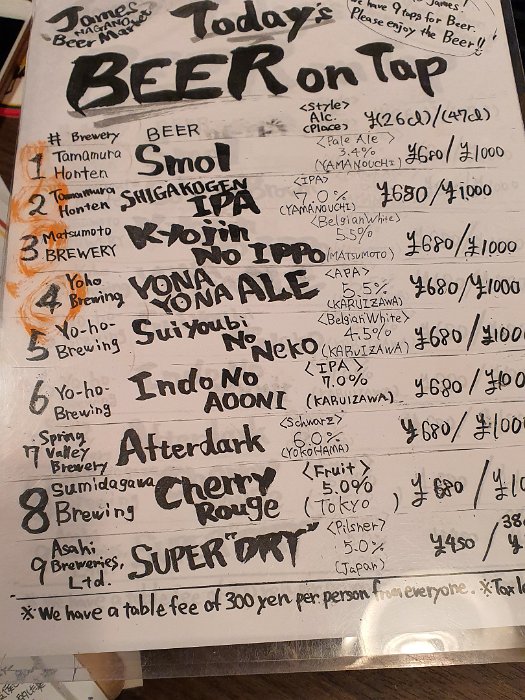 James
NAGANO
Beer Market
Today's
have 9 taps for Beer.
Please enjoy the Beer!!
BEER on Tap
# Brewery BEER <Style> Alc. (Place) ¥(26cl)/(47cl)
1 Tamamura Honten Smol <Pale Ale> 3.4% (YAMANOUCHI) ¥680/¥1000
2 Tamamura Honten SHIGAKOGEN IPA <IPA> 7.0% (YAMANOUCHI) ¥680/¥1,000
3 Matsumoto BREWERY Kyojin No IPPO <Belgian White> 5.5% (MATSUMOTO) ¥680/¥1000
4 Yoho Brewing YONA YONA ALE <APA> 5.5% (KARUIZAWA) ¥680/¥1000
5 Yo-ho- Brewing Suiyoubi No Neko <Belgian White> 4.5% (KARUIZAWA) ¥680/¥100
6 Yo-ho- Brewing Indo No AOONI <IPA> 7.0% (KARUIZAWA) ¥680/¥100
7 Spring Valley Brewery Afterdark <Schwarz> 6.0% (YOKOHAMA) ¥680/¥100
8 Sumidagawa Brewing Cherry Rouge <Fruit> 5.0% (TOKYO) ¥680/¥10
9 Asahi Breweries, Ltd. SUPER "DRY" <Pilsner> 5.0% (Japan) ¥450/¥
38
※We have a table fee of 300 yen per person from everyone. ※Tax